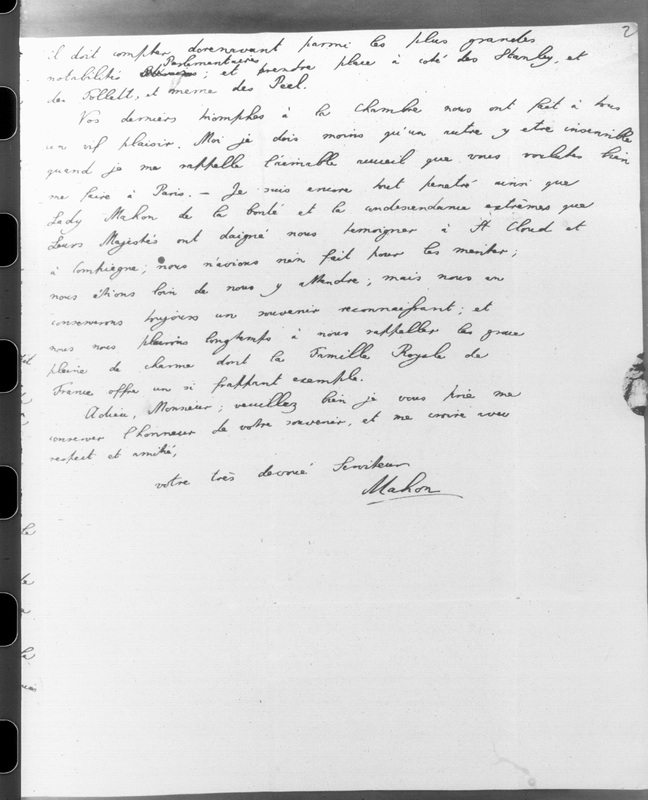 2
il doit compter dorenavant parmi les plus grandes
Parlementaires
notabilités ; et prendre place à coté des Stanley, et
des Follett, et meme des Peel.
Vos derniers triomphes à la Chambre nous ont fait à tous
un vif plaisir. Moi je dois moins qu'un autre y etre insensible
quand je me rappelle l'aimable accueil que vous voulutes bien
me faire à Paris. — Je suis encore tout penetré ainsi que
Lady Mahon de la bonté et la condescendance extrêmes que
Leurs Majestés ont daigné nous temoigner à St Cloud et
à Compiegne; nous n'avions rien fait pour les meriter;
nous étions loin de nous y attendre; mais nous en
conserverons toujours un souvenir reconnaissant; et
nous nous plairons longtemps à nous rappeller les grace
pleine de charme dont la Famille Royale de
France offre un si frappant exemple.
Adieu, Monsieur; veuillez bien je vous prie me
conserver l'honneur de votre souvenir, et me croire avec
respect et amitié,
votre très devoué Serviteur
Mahon